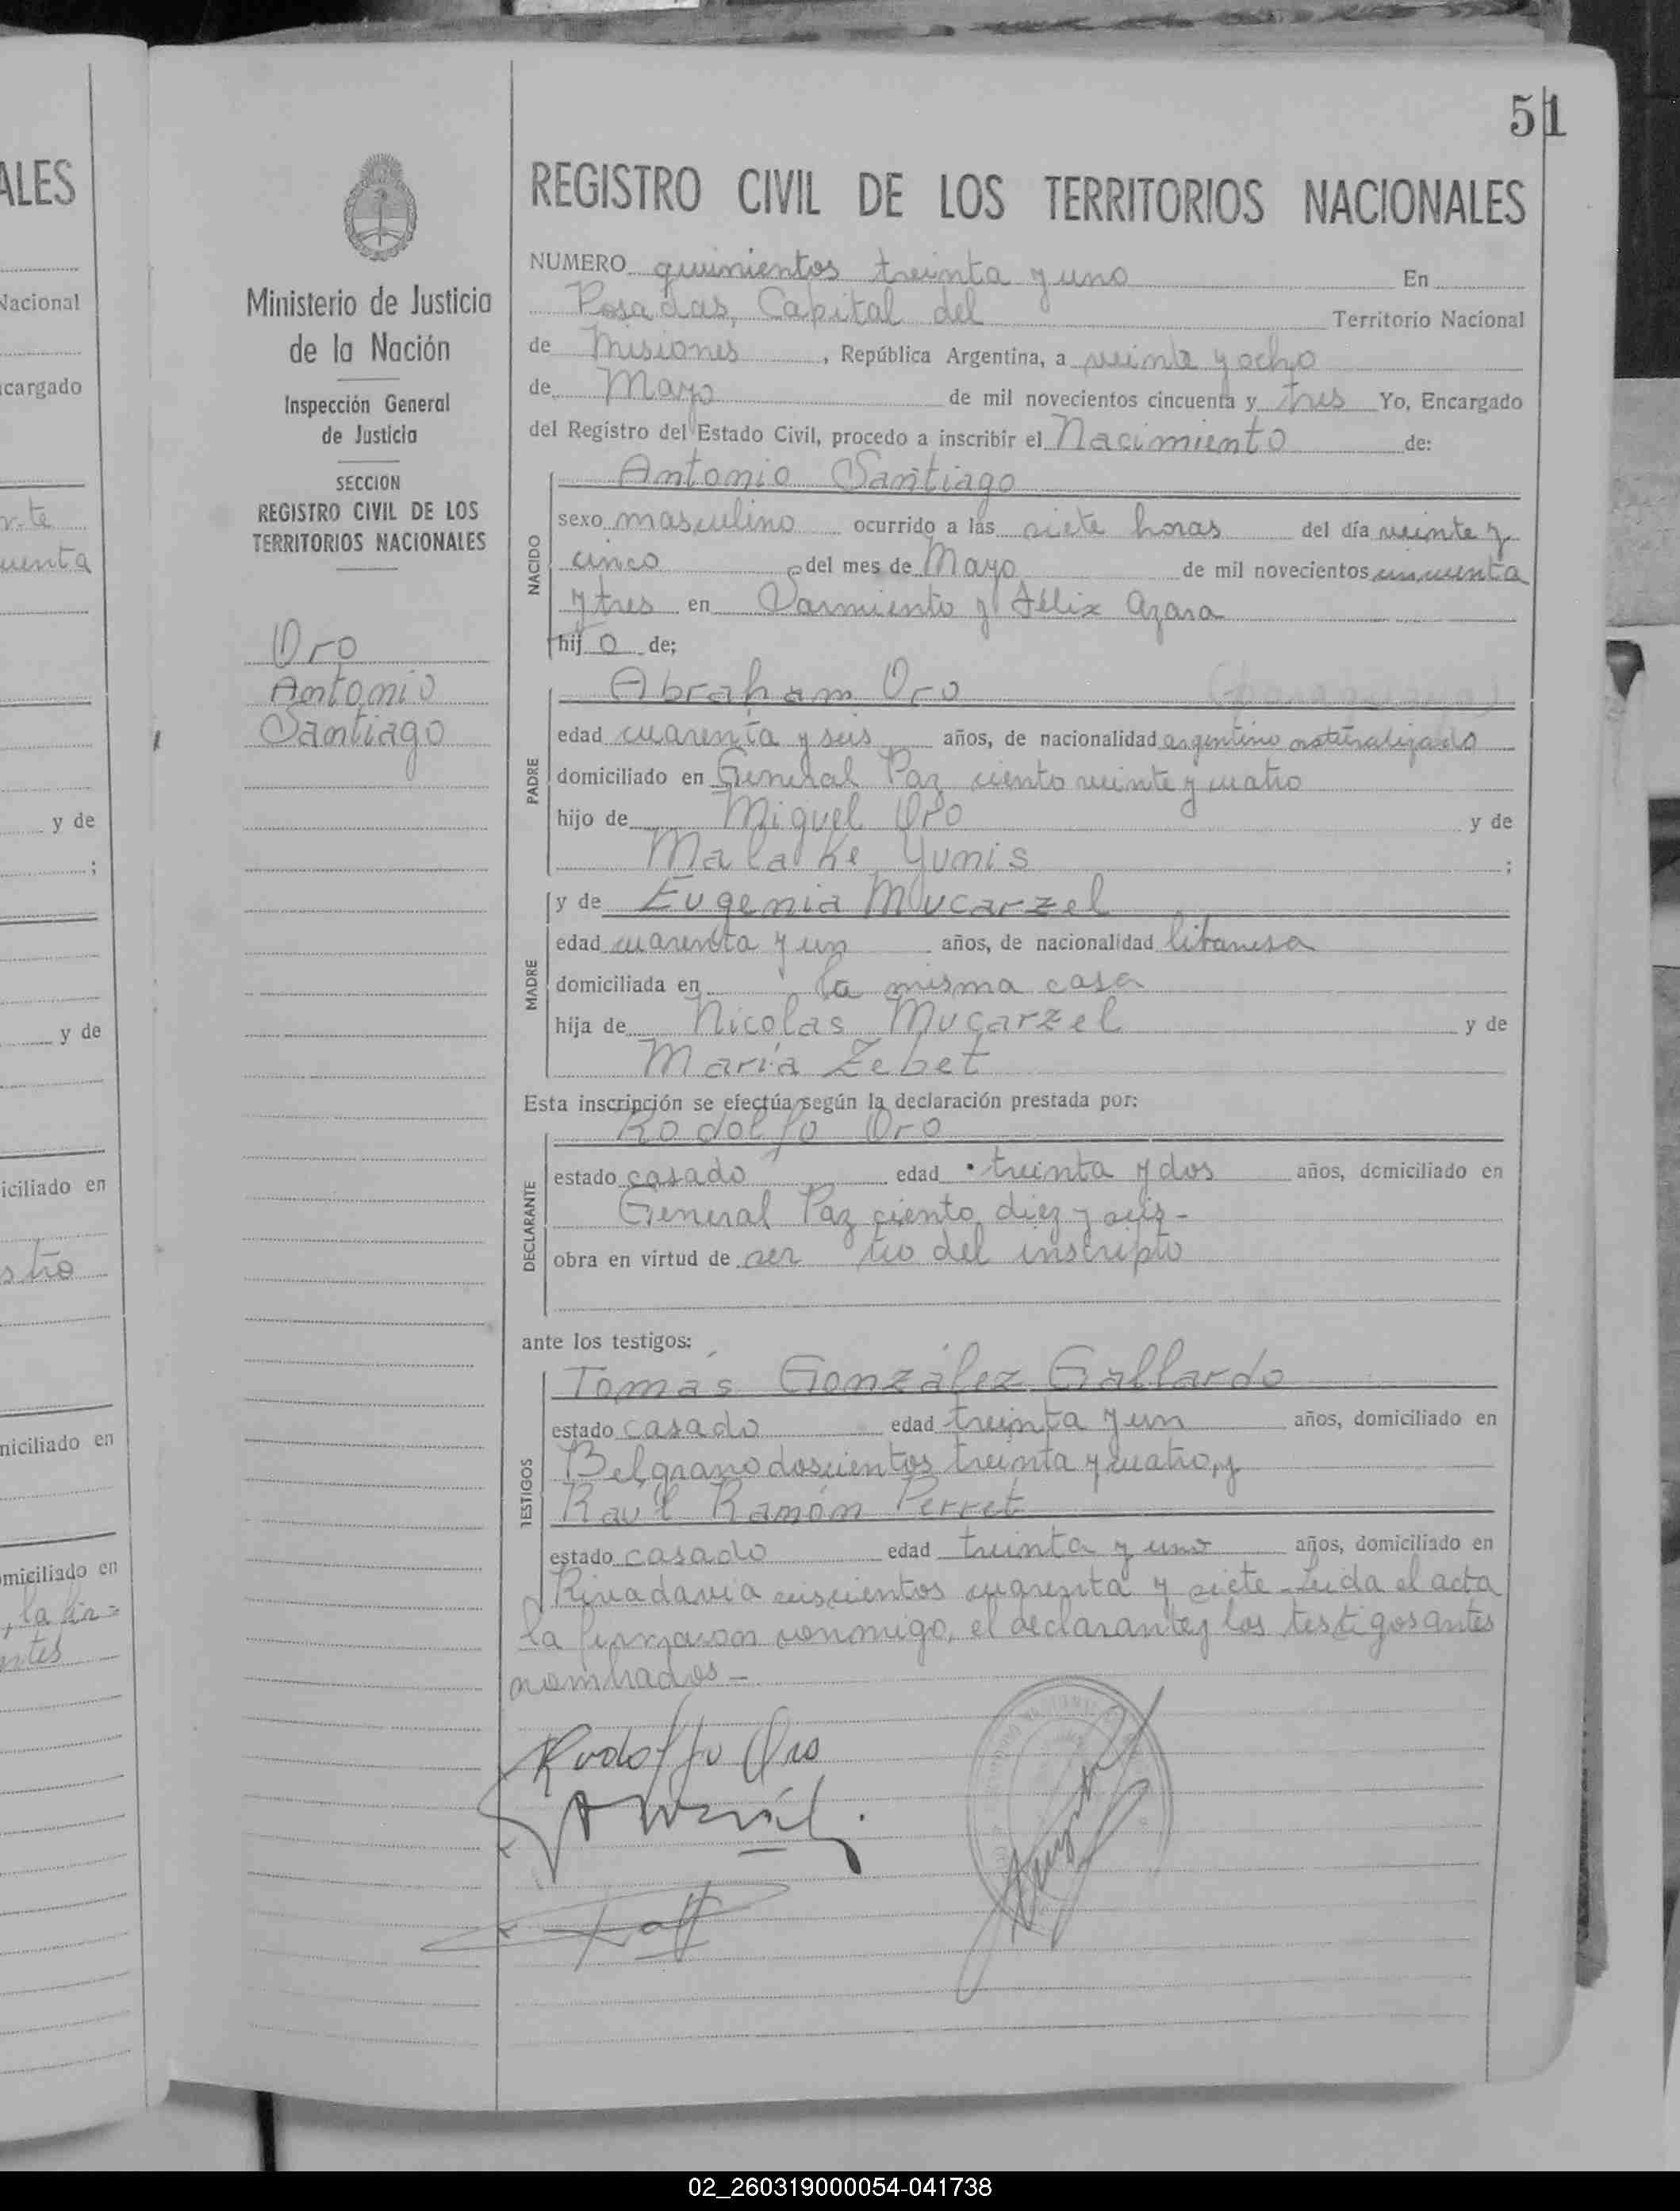 51
ALES
Nacional
cargado
y de
;
y de
iciliado en
niciliado en
omiciliado en
Ministerio de Justicia
de la Nación
Inspección General
de Justicia
SECCION
REGISTRO CIVIL DE LOS
TERRITORIOS NACIONALES
Oro
Antonio
Santiago
REGISTRO CIVIL DE LOS TERRITORIOS NACIONALES
NUMERO quinientos treinta y uno En
Posadas, Capital del Territorio Nacional
de Misiones, República Argentina, a veinte y ocho
de Mayo de mil novecientos cincuenta y tres Yo, Encargado
del Registro del Estado Civil, procedo a inscribir el Nacimiento de:
NACIDO
Antonio Santiago
sexo masculino ocurrido a las siete horas del día veinte y
cinco del mes de Mayo de mil novecientos cincuenta
y tres en Sarmiento y Félix Azara
hij o de;
PADRE
Abraham Oro
edad cuarenta y seis años, de nacionalidad argentino naturalizado
domiciliado en General Paz ciento veinte y cuatro
hijo de Miguel Oro y de
Malake Yunis ;
MADRE
y de Eugenia Mucarzel
edad cuarenta y un años, de nacionalidad libanesa
domiciliada en la misma casa
hija de Nicolas Mucarzel y de
María Zebet
Esta inscripción se efectúa según la declaración prestada por:
DECLARANTE
Rodolfo Oro
estado casado edad treinta y dos años, domiciliado en
General Paz ciento diez y seis-
obra en virtud de ser tio del inscripto
ante los testigos:
TESTIGOS
Tomás González Gallardo
estado casado edad treinta y un años, domiciliado en
Belgrano doscientos treinta y cuatro, y
Raúl Ramón Perret
estado casado edad treinta y uno años, domiciliado en
Rivadavia seiscientos cuarenta y siete - Leida el acta
la firmaron conmigo, el declarante y los testigos antes
nombrados -
Rodolfo Oro
02_260319000054-041738